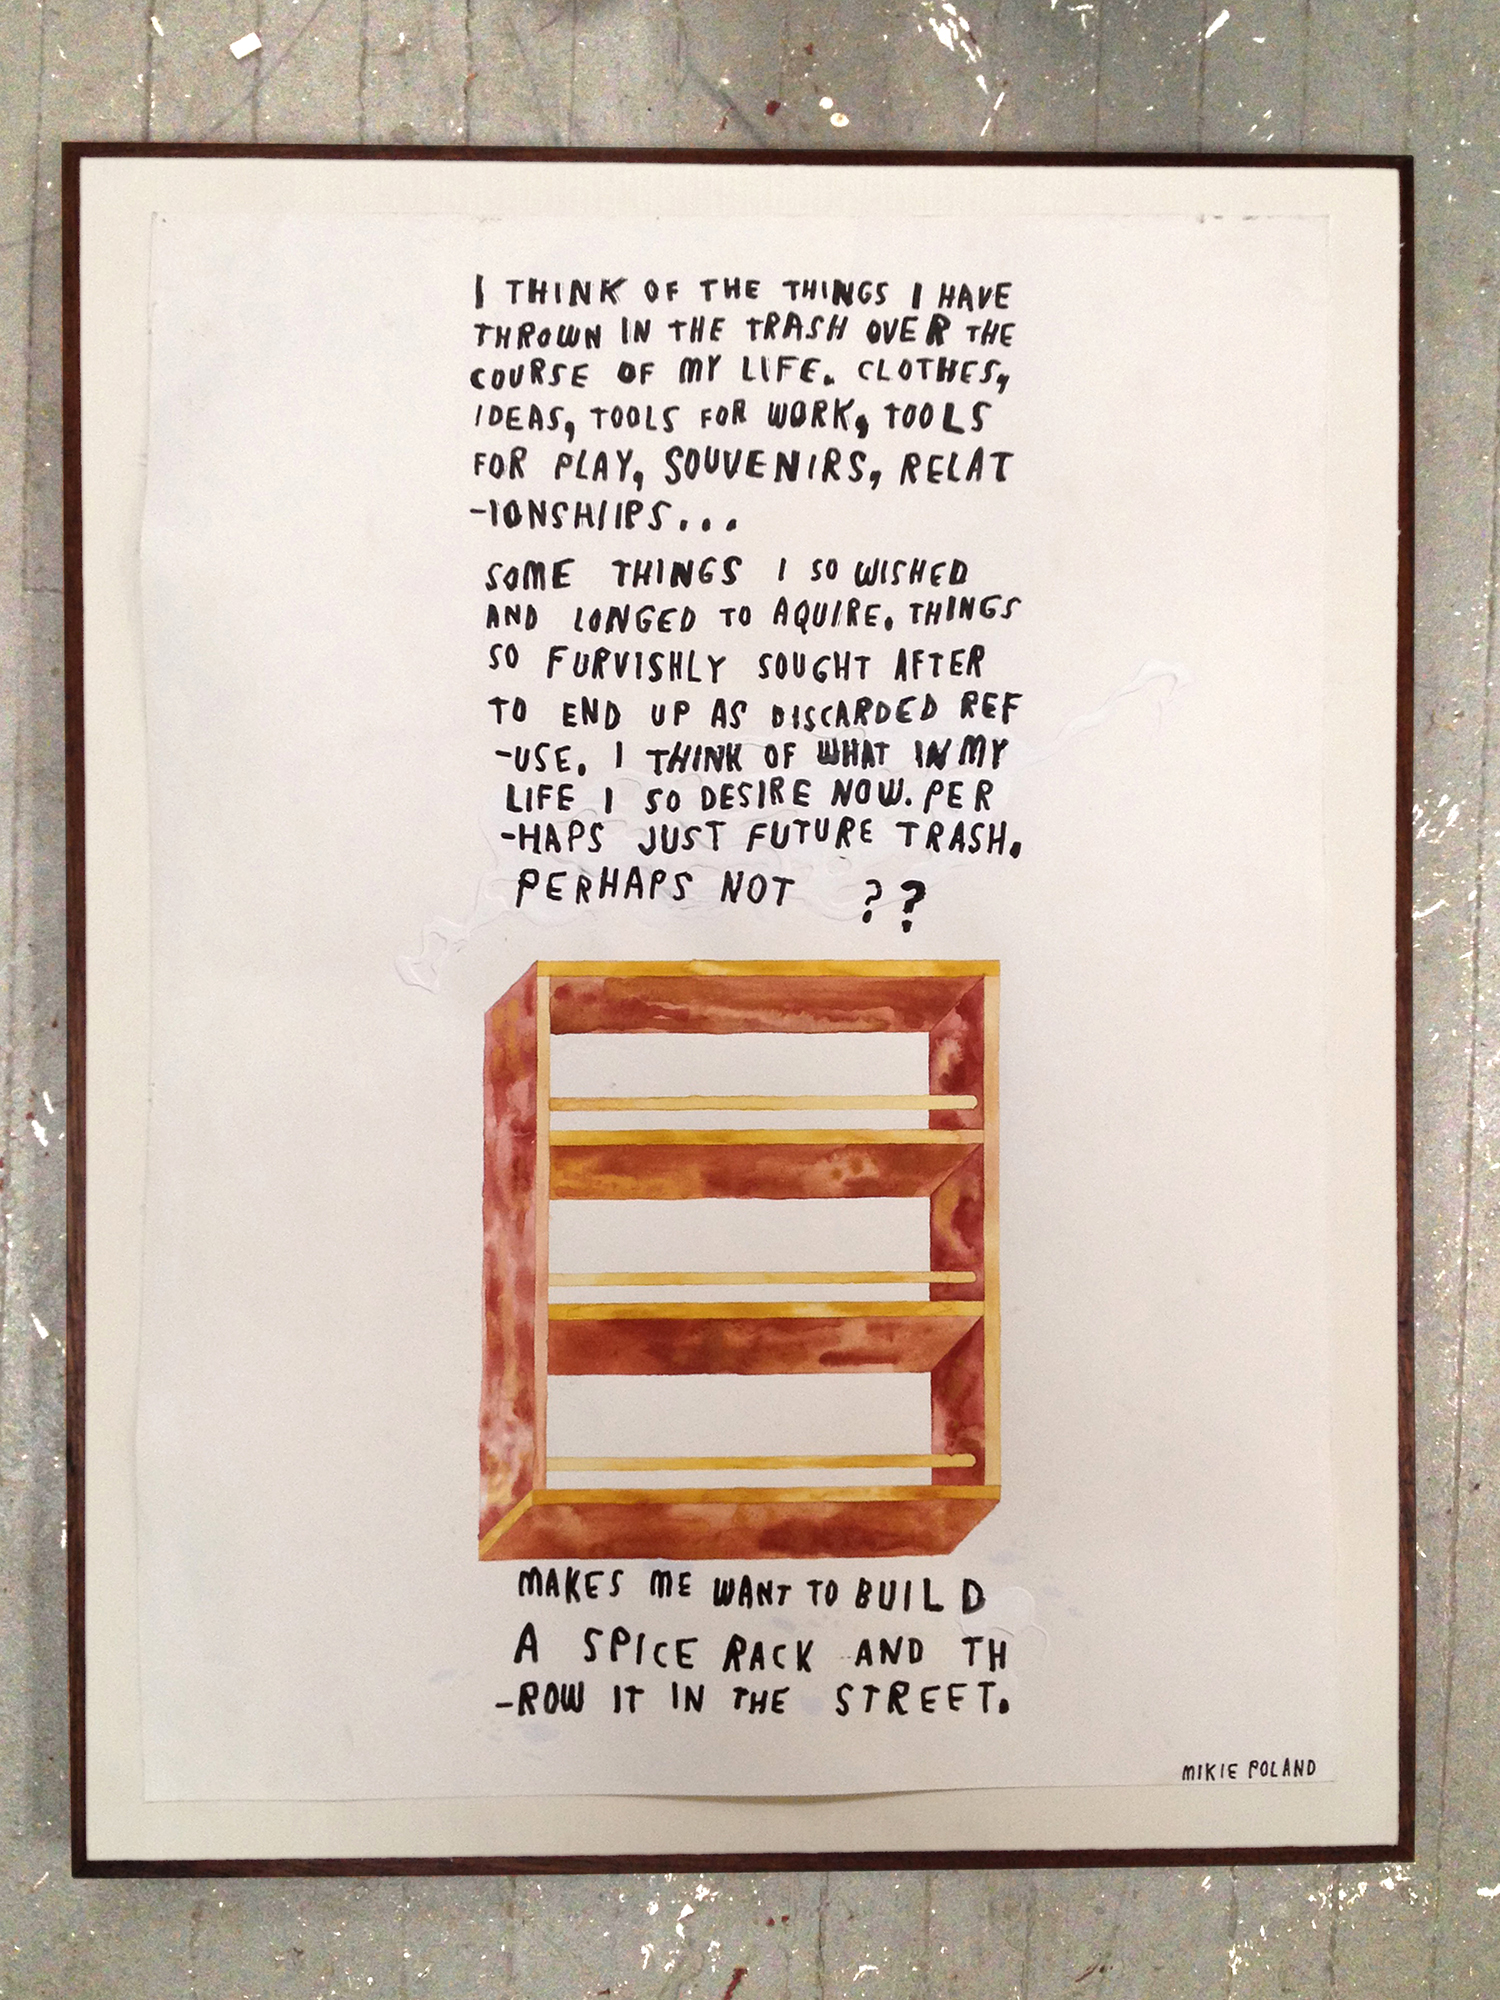 I THINK OF THE THINGS I HAVE
THROWN IN THE TRASH OVER THE
COURSE OF MY LIFE. CLOTHES,
IDEAS, TOOLS FOR WORK, TOOLS
FOR PLAY, SOUVENIRS, RELAT
-IONSHIIPS...
SOME THINGS I SO WISHED
AND LONGED TO AQUIRE. THINGS
SO FURVISHLY SOUGHT AFTER
TO END UP AS DISCARDED REF
-USE. I THINK OF WHAT IN MY
LIFE I SO DESIRE NOW. PER
-HAPS JUST FUTURE TRASH.
PERHAPS NOT ??
MAKES ME WANT TO BUILD
A SPICE RACK AND TH
-ROW IT IN THE STREET.
MIKIE POLAND